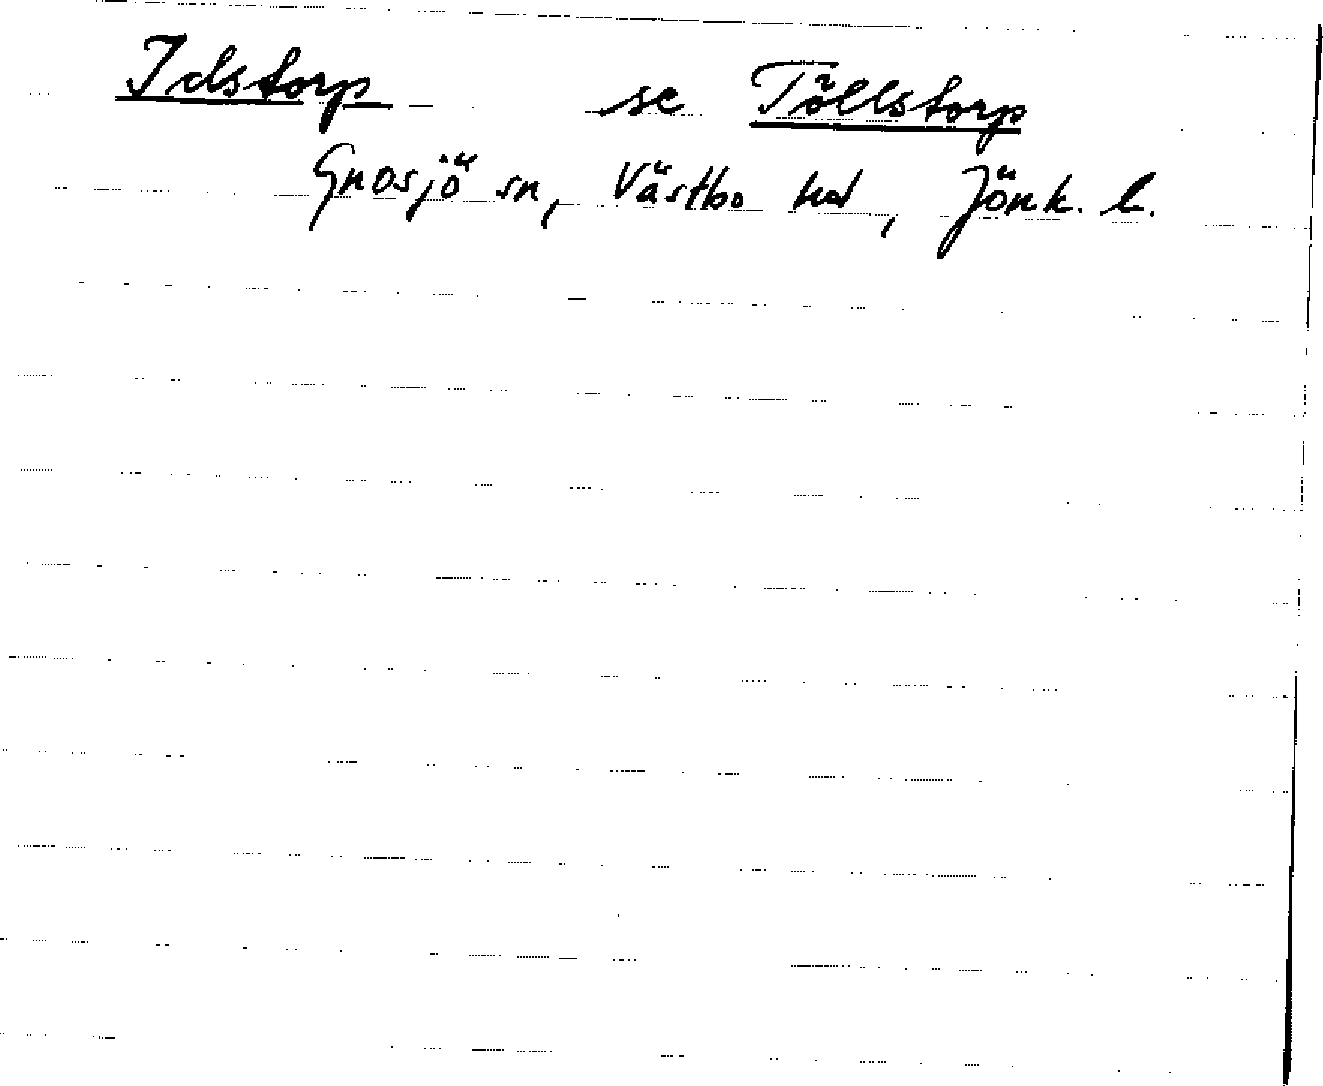 Idstorp se Töllstorp
Gnosjö sn, Västbo hd, Jönk. l.